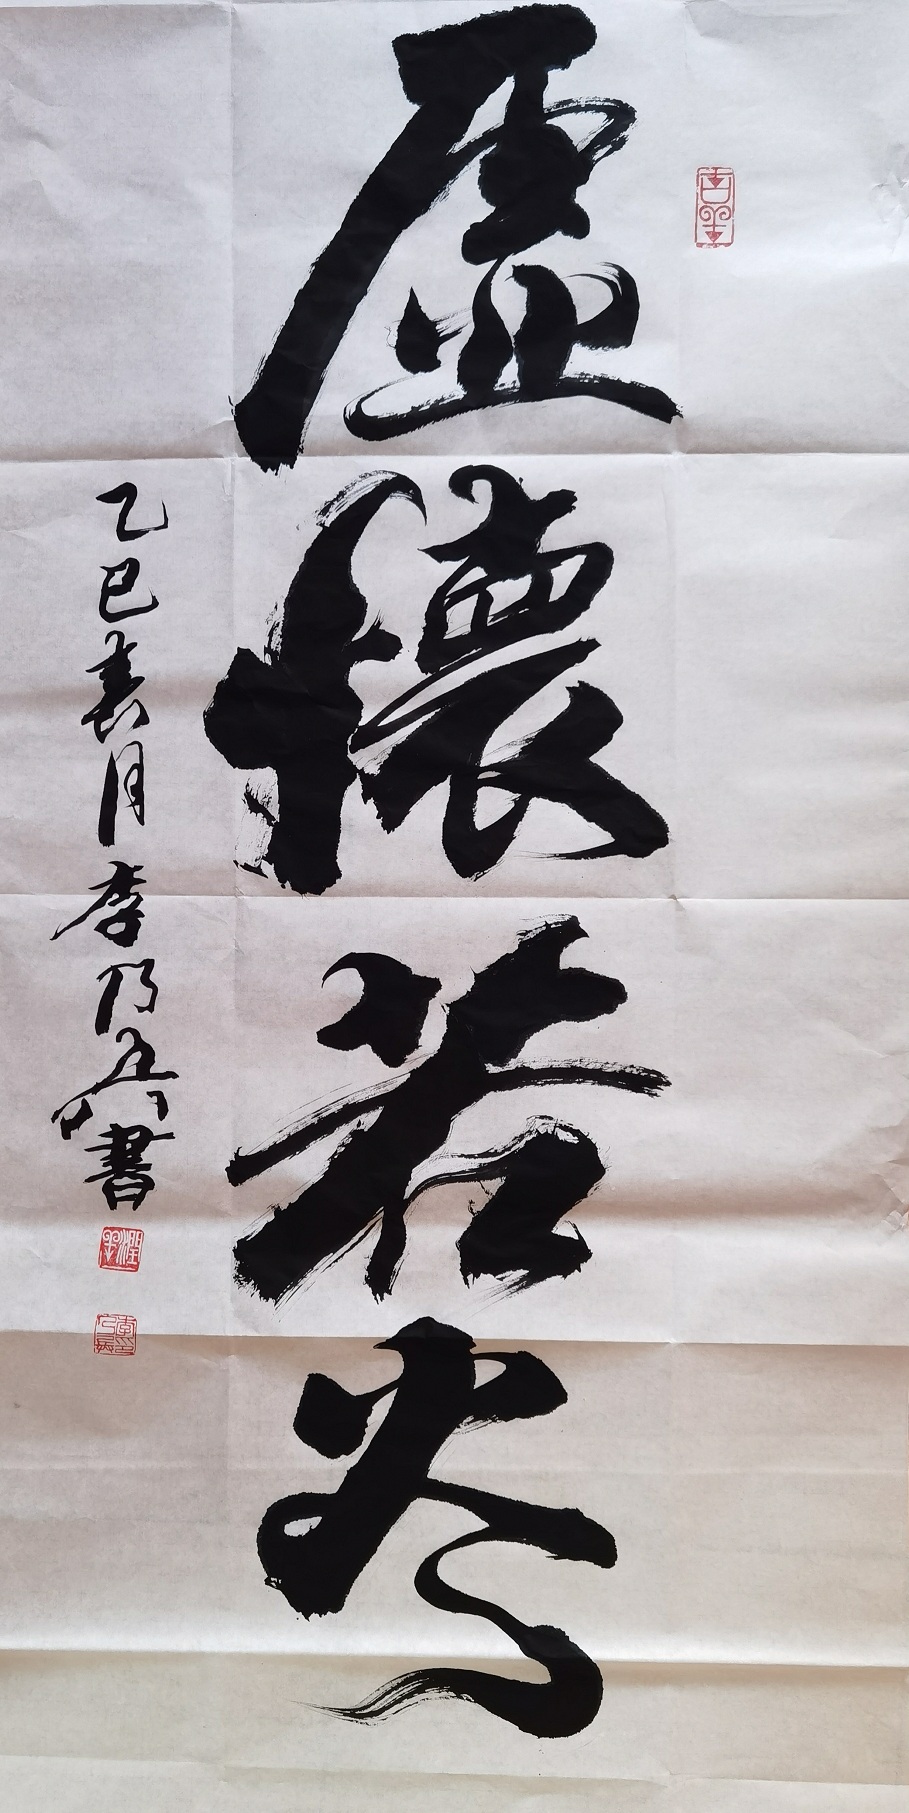 虚懷若谷
乙巳春月李乃兵書